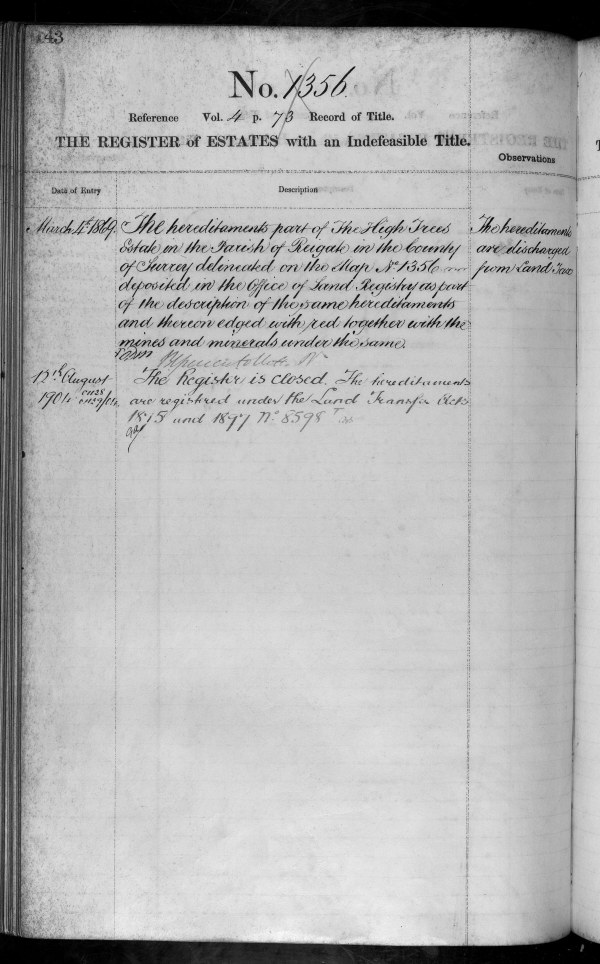 43
No. 1356.
Reference Vol. 4 p. 73 Record of Title.
THE REGISTER of ESTATES with an Indefeasible Title.
Observations
Date of Entry Description
March 4th 1869. The hereditaments part of The High Trees
Estate in the Parish of Reigate in the County
of Surrey delineated on the Map No 1356 now
deposited in the Office of Land Registry as part
of the description of the same hereditaments
and thereon edged with red together with the
mines and minerals under the same.
The hereditaments
are discharged
from Land Tax
12th August
1904
The Register is closed. The hereditaments
are registred under the Land Transfer Acts
1875 and 1897 No 8598